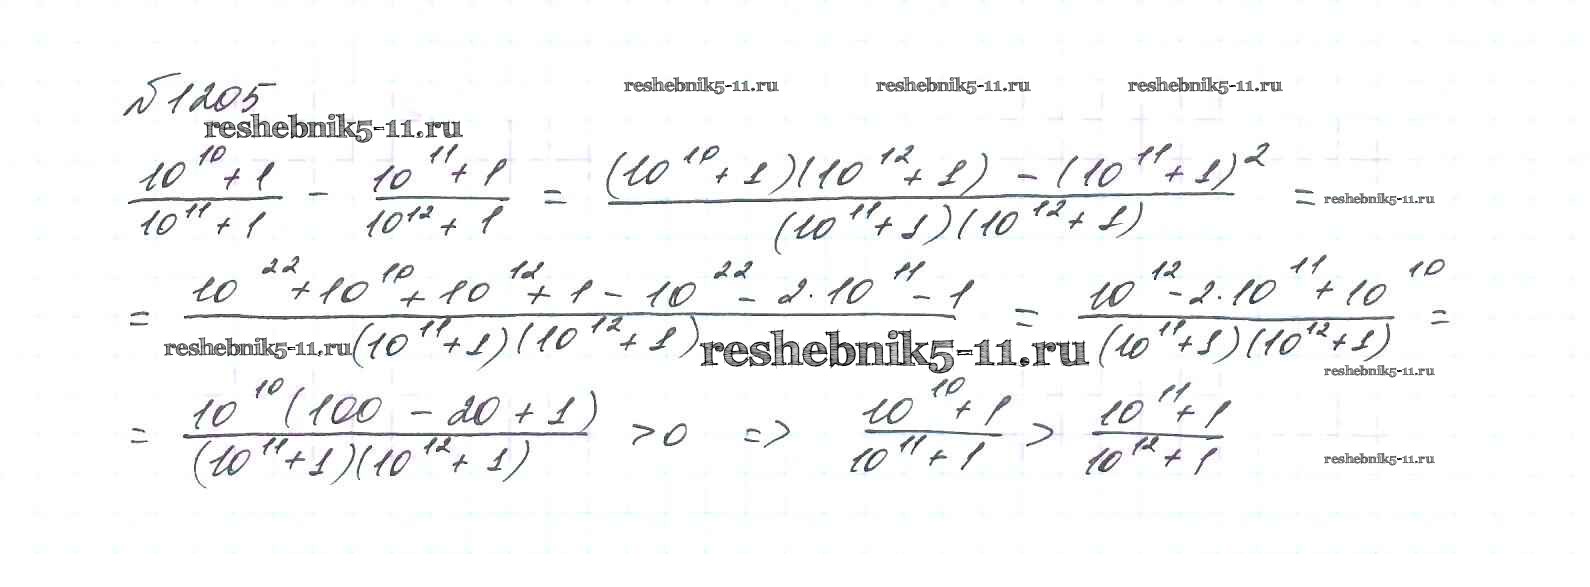 №1205
reshebnik5-11.ru reshebnik5-11.ru reshebnik5-11.ru
reshebnik5-11.ru
(10^10 + 1)/(10^11 + 1) - (10^11 + 1)/(10^12 + 1) = ((10^10 + 1)(10^12 + 1) - (10^11 + 1)^2)/((10^11 + 1)(10^12 + 1)) = reshebnik5-11.ru
= (10^22 + 10^10 + 10^12 + 1 - 10^22 - 2·10^11 - 1)/((10^11 + 1)(10^12 + 1)) = (10^12 - 2·10^11 + 10^10)/((10^11 + 1)(10^12 + 1)) =
reshebnik5-11.ru reshebnik5-11.ru
reshebnik5-11.ru
= 10^10(100 - 20 + 1)/((10^11 + 1)(10^12 + 1)) > 0 => (10^10 + 1)/(10^11 + 1) > (10^11 + 1)/(10^12 + 1)
reshebnik5-11.ru